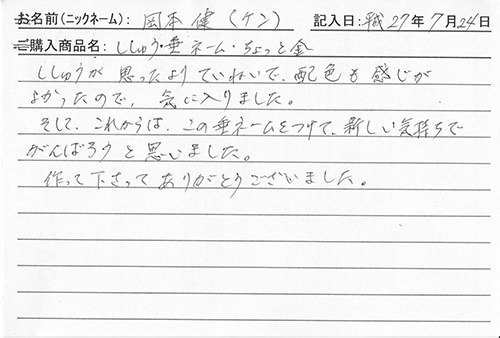 お名前(ニックネーム): 岡本 健 (ケン) 記入日:平成27年7月24日
ご購入商品名: ししゅう・垂ネーム・ちょっと金
ししゅうが思ったよりていねいで、配色も感じが
よかったので、気に入りました。
そして、これからは、この垂ネームをつけて、新しい気持ちで
がんばろうと思いました。
作って下さってありがとうございました。